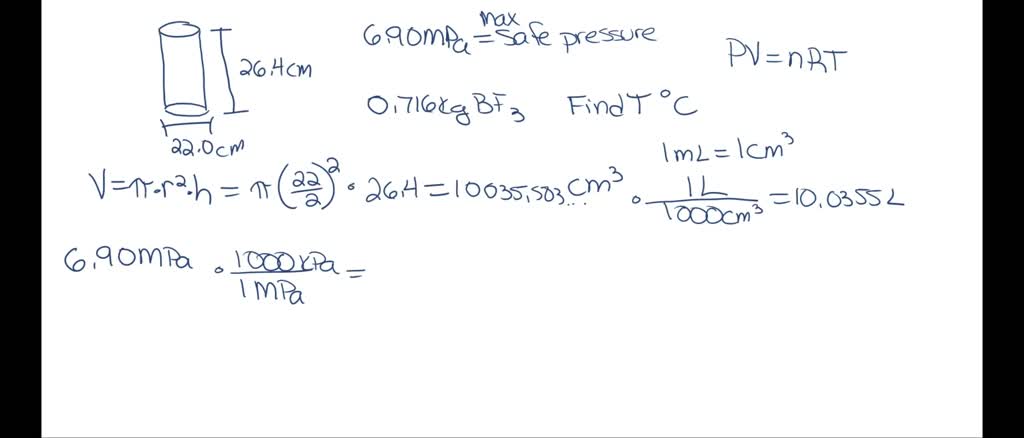 6.90mPa = max safe pressure
PV=nRT
26.4cm
0.716kg BF₃ Find T °C
22.0cm
1mL=1cm³
V=π·r²·h = π(22/2)² · 26.4 = 10035.503... cm³ · 1L/1000cm³ = 10.0355L
6.90mPa · 1000kPa/1MPa =